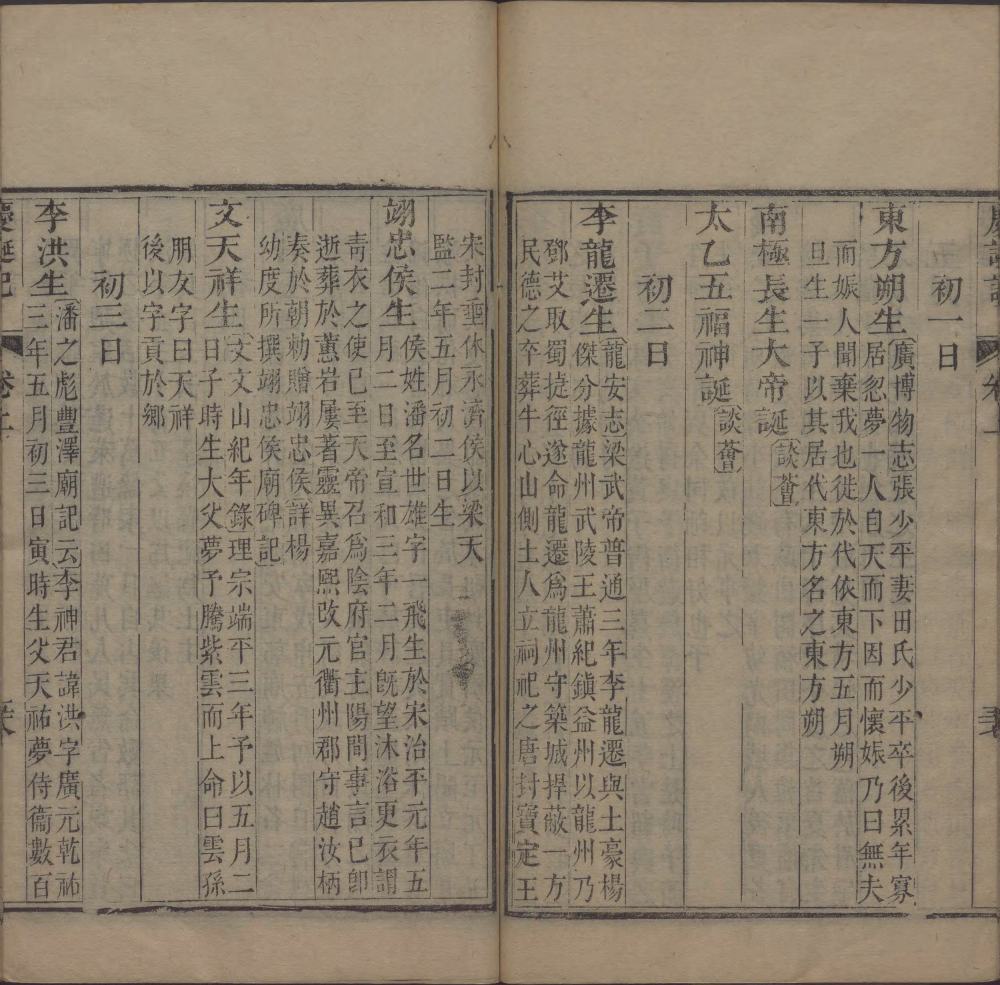 初一日
東方朔生
廣博物志張少平妻田氏少平卒後累年寡
居忽夢一人自天而下因而懷娠乃曰無夫
而娠人聞棄我也徙於代依東方五月朔
旦生一子以其居代東方名之東方朔
南極長生大帝誕 談薈
太乙五福神誕 談薈
初二日
李龍遷生
龍安志梁武帝普通三年李龍遷與土豪楊
傑分據龍州武陵王蕭紀鎮益州以龍州乃
鄧艾取蜀捷徑遂命龍遷爲龍州守築城捍蔽一方
民德之卒葬牛心山側土人立祠祀之唐封寶定王
宋封 休永濟侯以梁天
監二年五月初二日生
翊忠侯生
侯姓潘名世雄字一飛生於宋治平元年五
月二日至宣和三年二月旣望沐浴更衣謂
靑衣之使已至天帝召爲陰府官主陽間事言已卽
逝葬於蕙岩屢著靈異嘉熙改元衢州郡守趙汝柄
奏於朝勅贈翊忠侯詳楊
幼度所撰翊忠侯廟碑記
文天祥生
文文山紀年錄理宗端平三年予以五月二
日子時生大父夢予騰紫雲而上命曰雲孫
朋友字曰天祥
後以字貢於鄉
初三日
李洪生
潘之彪豐澤廟記云李神君諱洪字廣元乾祐
三年五月初三日寅時生父天祐夢侍衞數百
慶誕記 卷上